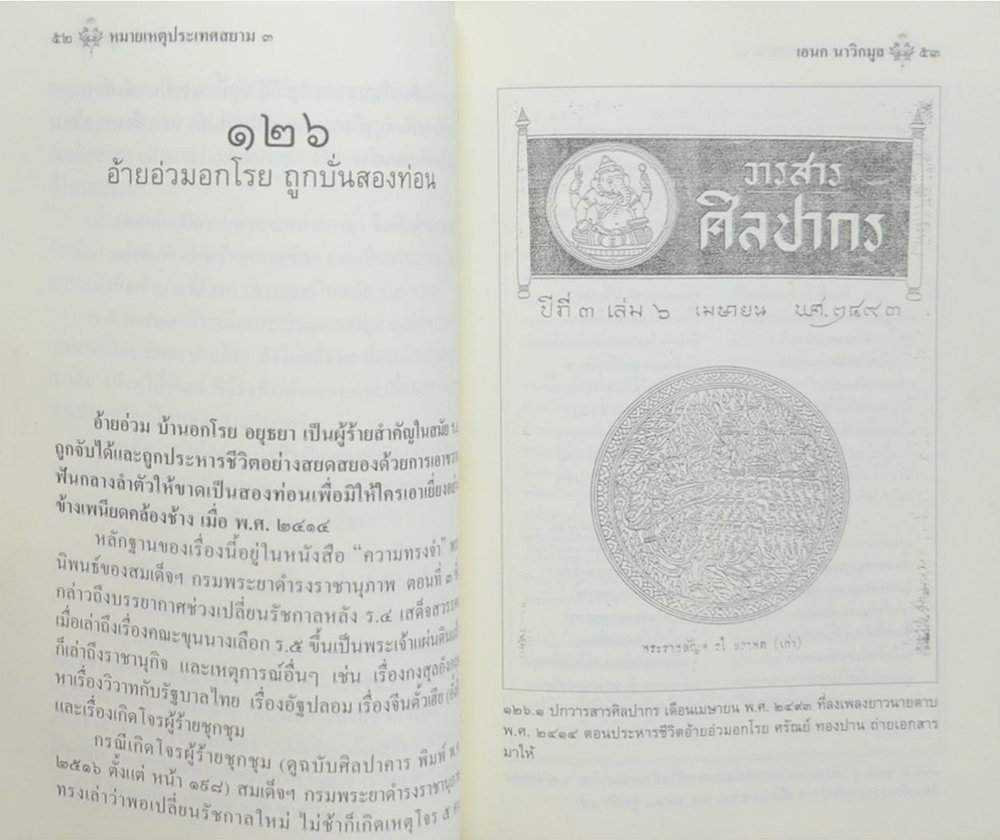 ๕๒ หมายเหตุประเทศสยาม ๓
๑๒๖
อ้ายอ่วมอกโรย ถูกบั่นสองท่อน
อ้ายอ่วม บ้านอกโรย อยุธยา เป็นผู้ร้ายสำคัญในสมัย
ถูกจับได้และถูกประหารชีวิตอย่างสยดสยองด้วยการเอาขวาน
ฟันกลางลำตัวให้ขาดเป็นสองท่อนเพื่อมิให้ใครเอาเยี่ยง
ข้างเพนียดคล้องช้าง เมื่อ พ.ศ. ๒๔๑๔
หลักฐานของเรื่องนี้อยู่ในหนังสือ “ความทรงจำ”
นิพนธ์ของสมเด็จฯ กรมพระยาดำรงราชานุภาพ ตอนที่ ๓
กล่าวถึงบรรยากาศช่วงเปลี่ยนรัชกาลหลัง ร.๔ เสด็จสวรรค
เมื่อเล่าถึงเรื่องคณะขุนนางเลือก ร.๕ ขึ้นเป็นพระเจ้าแผ่นดิน
ก็เล่าถึงราชานุกิจ และเหตุการณ์อื่นๆ เช่น เรื่องกงสุลอังกฤษ
หาเรื่องวิวาทกับรัฐบาลไทย เรื่องอัฐปลอม เรื่องจีนตั้วเฮีย
และเรื่องเกิดโจรผู้ร้ายชุกชุม
กรณีเกิดโจรผู้ร้ายชุกชุม (ดูฉบับศิลปาคาร พิมพ์ พ.ศ.
๒๕๑๖ ตั้งแต่ หน้า ๑๙๘) สมเด็จฯ กรมพระยาดำรงราชานุภาพ
ทรงเล่าว่าพอเปลี่ยนรัชกาลใหม่ ไม่ช้าก็เกิดเหตุโจร ๕
เอนก นาวิกมูล ๕๓
วารสาร
ศิลปากร
ปีที่ ๓ เล่ม ๖ เมษายน พ.ศ. ๒๔๙๓
๑๒๖.๑ ปกวารสารศิลปากร เดือนเมษายน พ.ศ. ๒๔๙๓ ที่ลงเพลงยาวนายดาบ
พ.ศ. ๒๔๑๔ ตอนประหารชีวิตอ้ายอ่วมอกโรย ศรัณย์ ทองปาน ถ่ายเอกสาร
มาให้